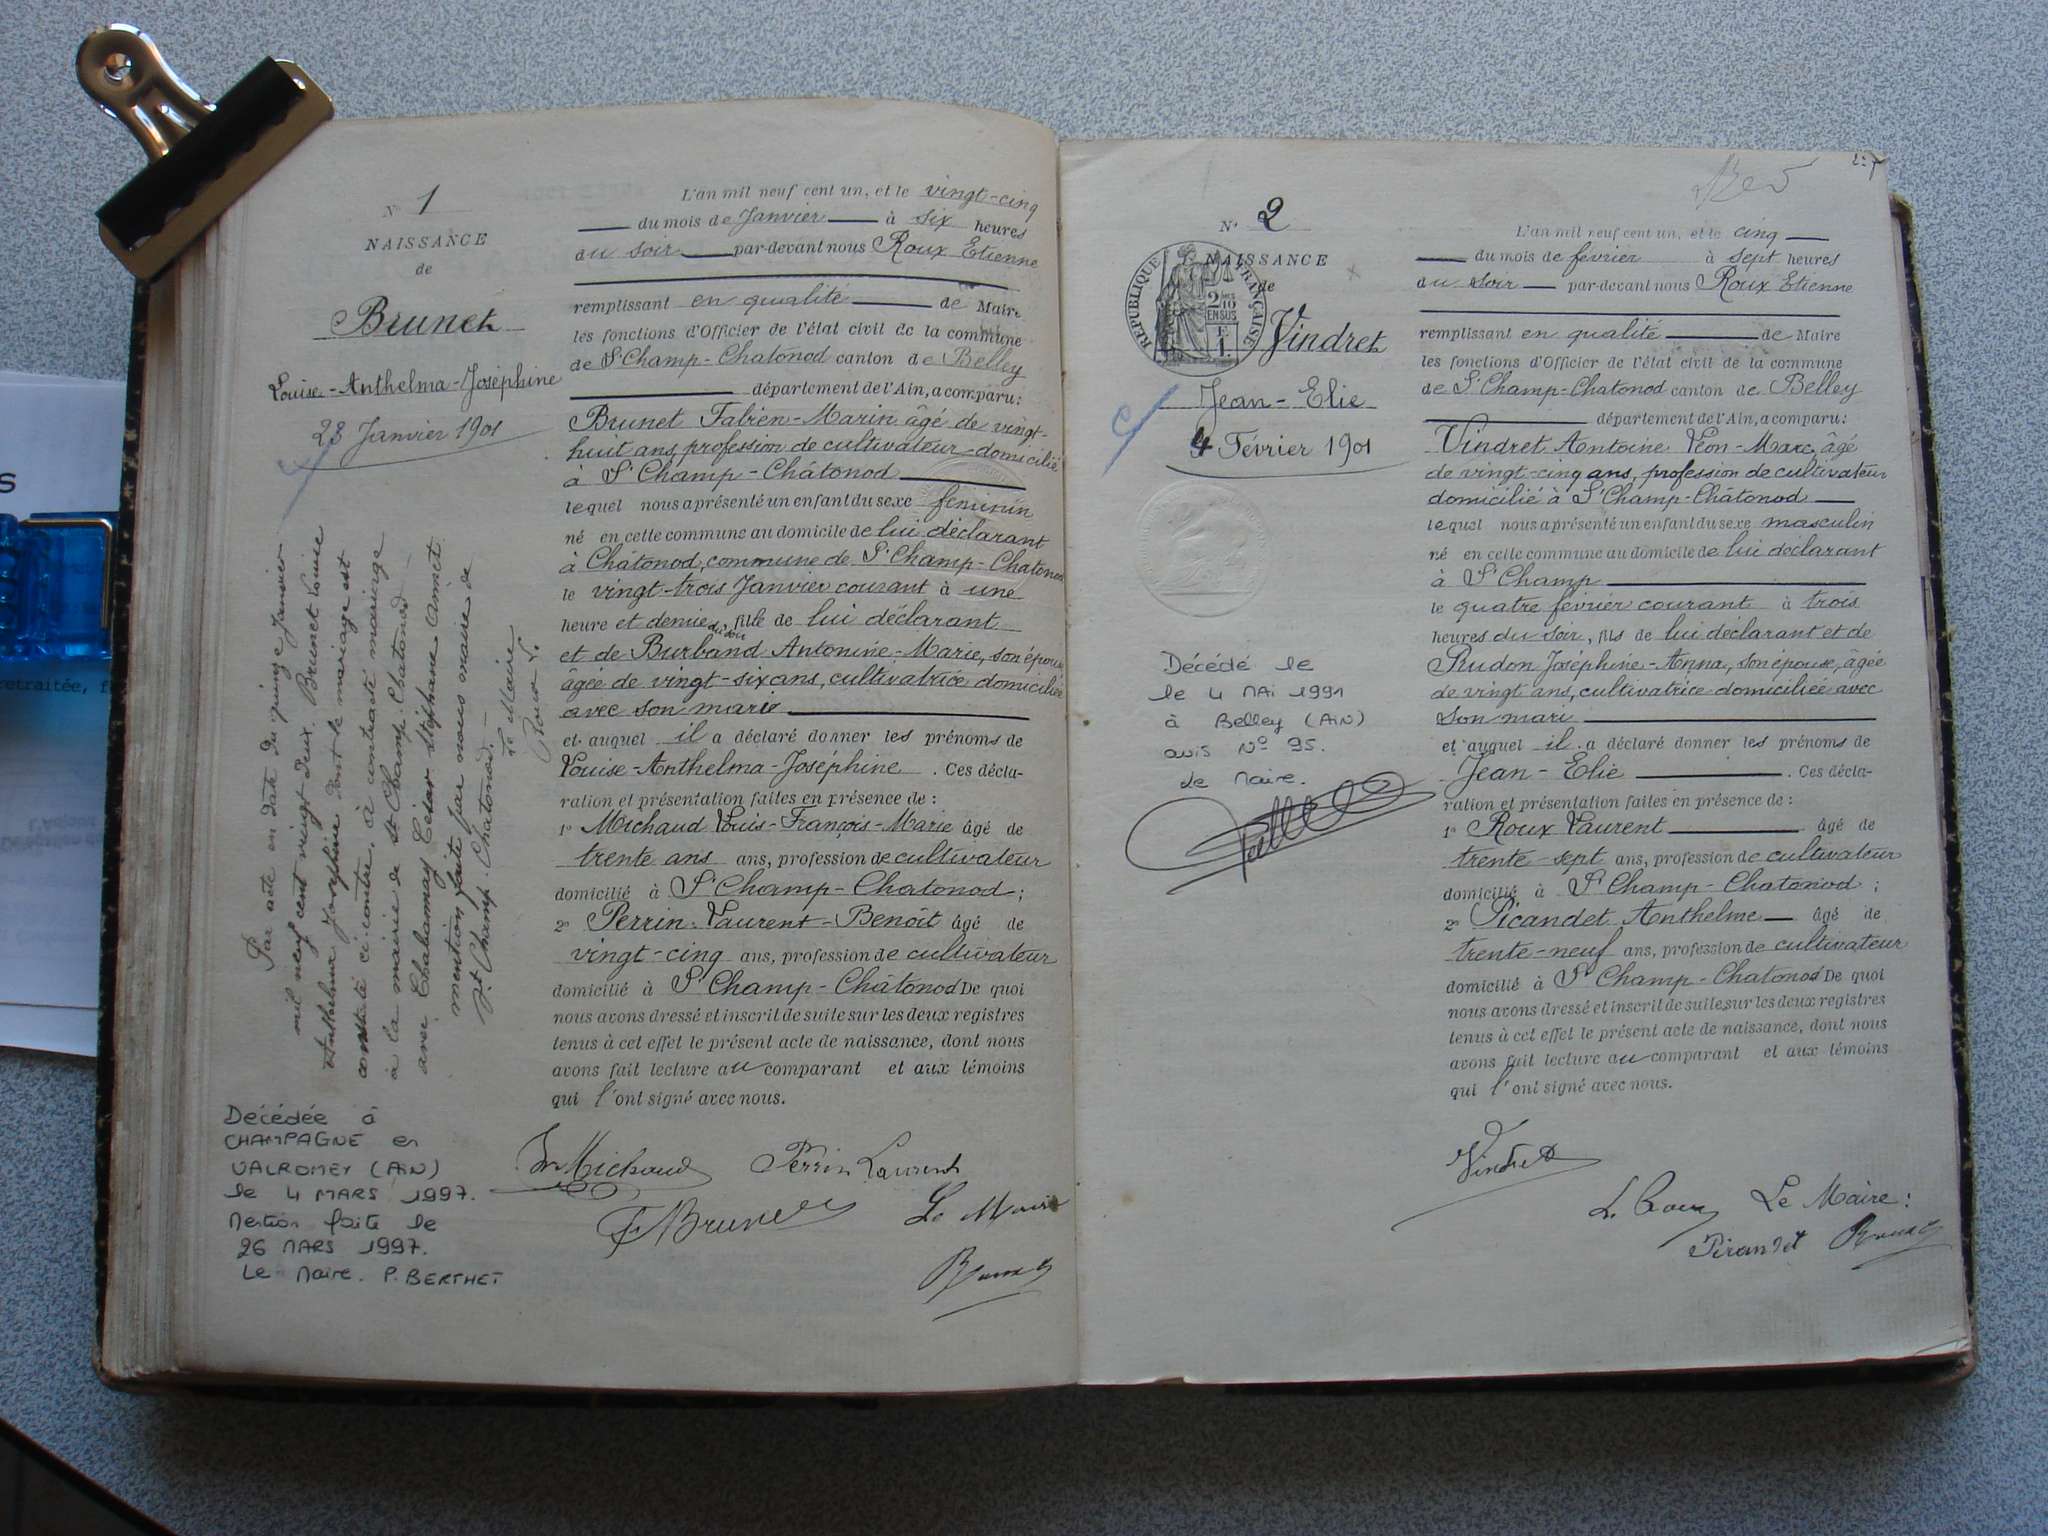 Nº 1
NAISSANCE
de
Brunet
Louise-Anthelma-Joséphine
23 Janvier 1901
Par acte en date du quinze Janvier
mil neuf cent vingt deux. Brunet Louise
Anthelma Joséphine dont le mariage est
constaté ci-contre, a contracté mariage
à la mairie de St Champ-Chatonod
avec César Stéphane Aimet
mention faite par nous maire de
St Champ-Chatonod.
Le Maire
Roux
Décédée à
CHAMPAGNE en
VALROMEY (AiN)
le 4 MARS 1997.
Mention faite le
26 MARS 1997.
Le Maire. P. BERTHET
L'an mil neuf cent un, et le vingt-cinq
du mois de Janvier à six heures
du soir par-devant nous Roux Etienne
remplissant en qualité de Maire
les fonctions d'Officier de l'état civil de la commune
de St Champ-Chatonod canton de Belley
département de l'Ain, a comparu:
Brunet Fabien-Marin âgé de vingt-
huit ans, profession de cultivateur domicilié
à St Champ-Châtonod
lequel nous a présenté un enfant du sexe féminin
né en cette commune au domicile de lui déclarant
à Châtonod, commune de St Champ-Chatonod
le vingt-trois Janvier courant à une
heure et demie du soir, fille de lui déclarant
et de Burband Antonine-Marie, son épouse
âgée de vingt-six ans, cultivatrice domiciliée
avec son mari
et auquel il a déclaré donner les prénoms de
Louise-Anthelma-Joséphine. Ces décla-
ration et présentation faites en présence de:
1º Michaud Louis-François-Marie âgé de
trente ans ans, profession de cultivateur
domicilié à St Champ-Chatonod;
2º Perrin Laurent-Benoît âgé de
vingt-cinq ans, profession de cultivateur
domicilié à St Champ-Châtonod De quoi
nous avons dressé et inscrit de suite, sur les deux registres
tenus à cet effet le présent acte de naissance, dont nous
avons fait lecture au comparant et aux témoins
qui l'ont signé avec nous.
Michaud Perrin Laurent
F. Brunet Le Maire
Roux
Nº 2
NAISSANCE
de
RÉPUBLIQUE FRANÇAISE
2/10 EN SUS
Vindret
Jean-Elie
4 Février 1901
Décédé le
le 4 MAi 1991
à Belley (AiN)
avis Nº 95.
Le Maire.
L'an mil neuf cent un, et le cinq
du mois de février à sept heures
du soir par-devant nous Roux Etienne
remplissant en qualité de Maire
les fonctions d'Officier de l'état civil de la commune
de St Champ-Chatonod canton de Belley
département de l'Ain, a comparu:
Vindret Antoine Léon-Marc, âgé
de vingt-cinq ans, profession de cultivateur
domicilié à St Champ-Châtonod
lequel nous a présenté un enfant du sexe masculin
né en cette commune au domicile de lui déclarant
à St Champ
le quatre février courant à trois
heures du soir, fils de lui déclarant et de
Rudon Joséphine-Anna, son épouse, âgée
de vingt ans, cultivatrice domiciliée avec
son mari
et auquel il a déclaré donner les prénoms de
Jean-Elie. Ces décla-
ration et présentation faites en présence de:
1º Roux Laurent âgé de
trente-sept ans, profession de cultivateur
domicilié à St Champ-Chatonod;
2º Picandet Anthelme âgé de
trente-neuf ans, profession de cultivateur
domicilié à St Champ-Chatonod De quoi
nous avons dressé et inscrit de suite, sur les deux registres
tenus à cet effet le présent acte de naissance, dont nous
avons fait lecture au comparant et aux témoins
qui l'ont signé avec nous.
Vindret
L. Roux Le Maire:
Picandet Roux
retraitée, f